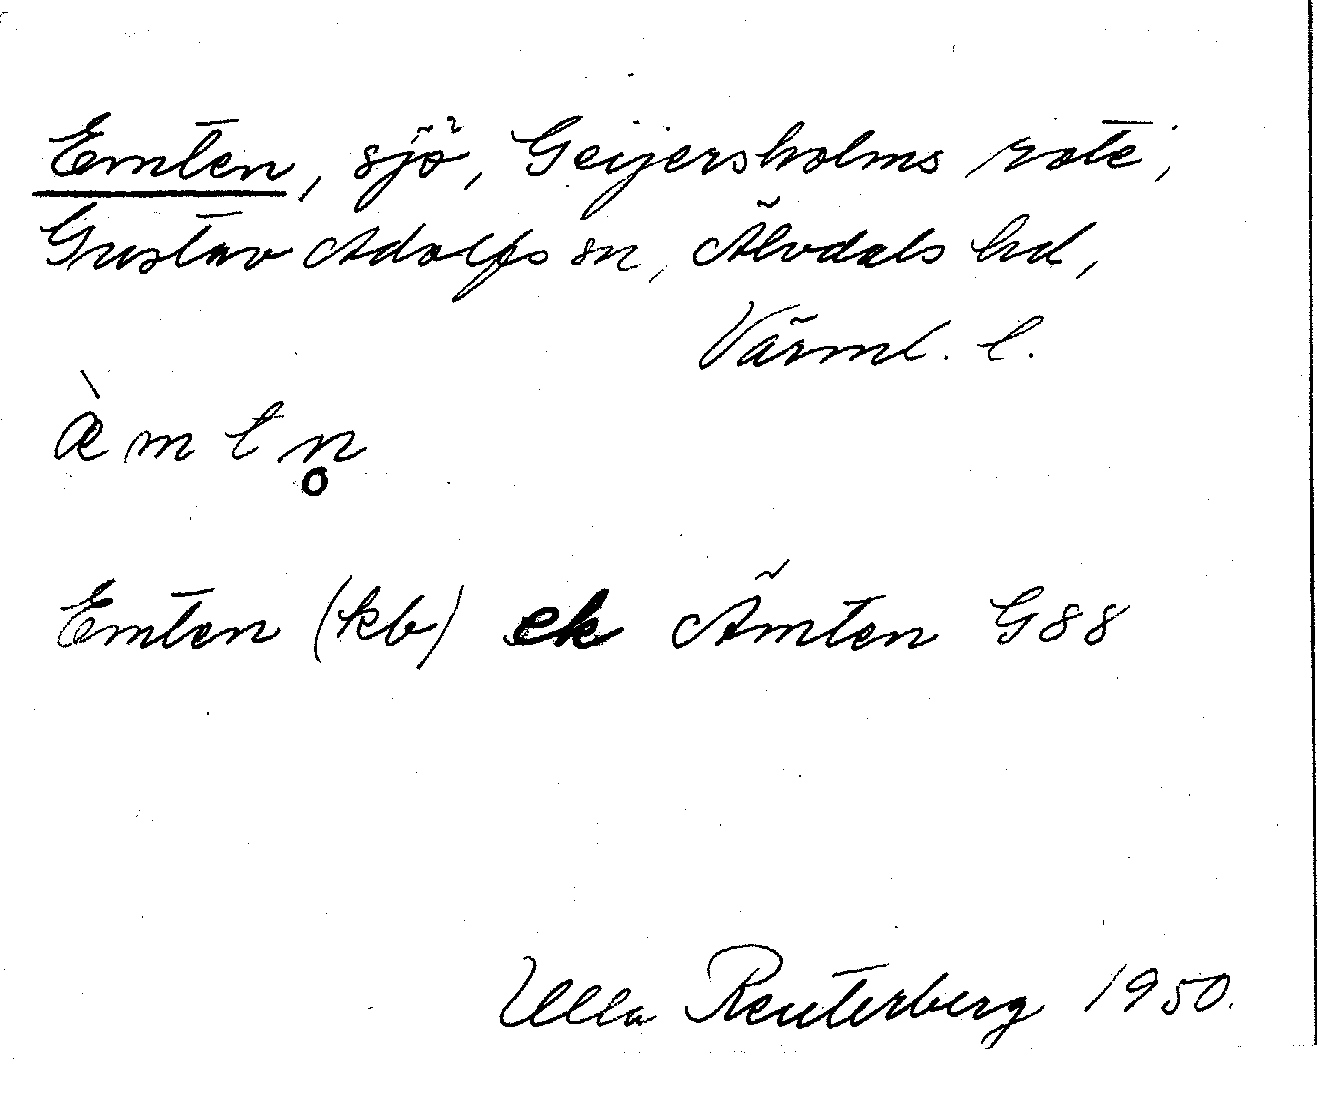 Emten, sjö, Geijersholms rote,
Gustav Adolfs sn, Älvdals hd,
Värml. l.
æ̀mtn̥
Emten (kb) ek Ämten G88
Ulla Reuterberg 1950.